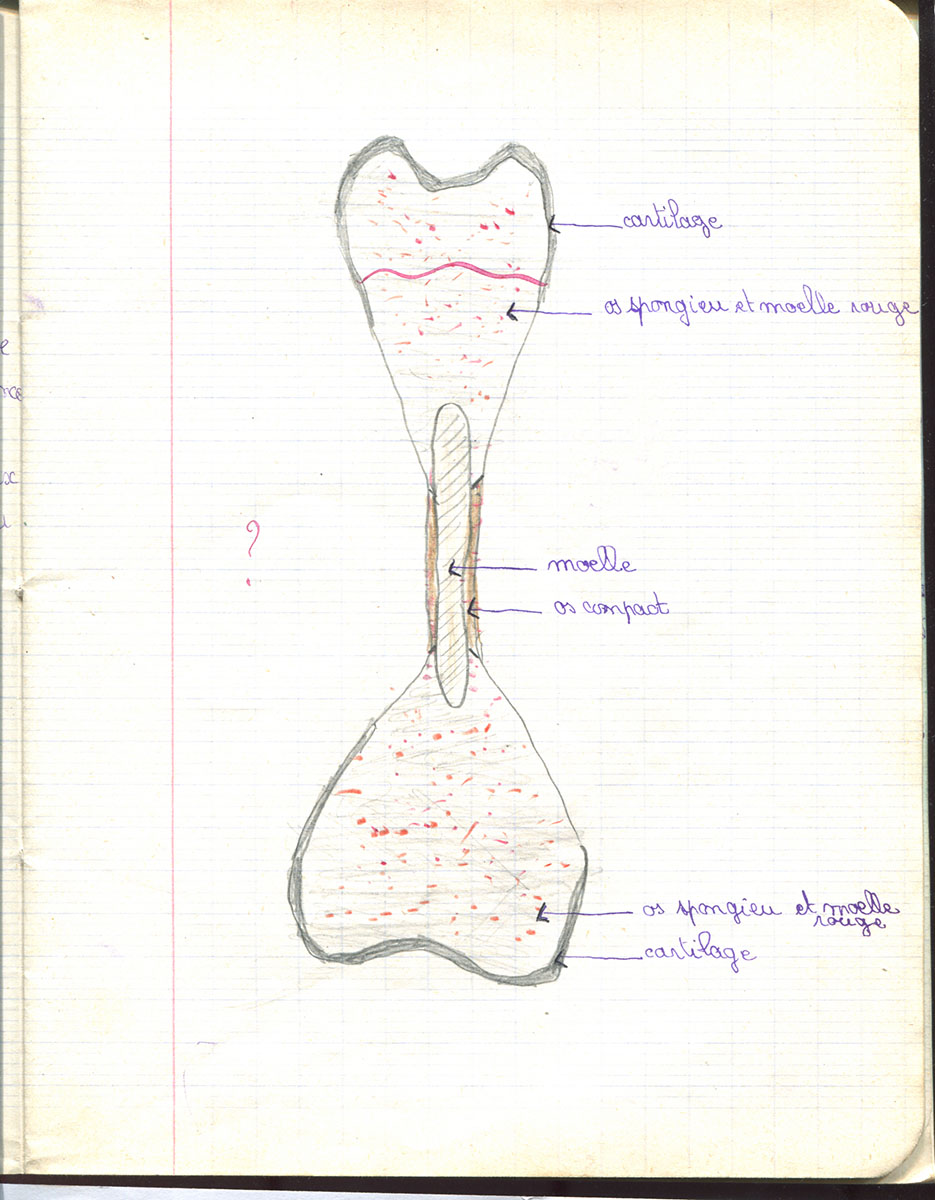 cartilage
os spongieu et moelle rouge
?
moelle
os compact
os spongieu et moelle
rouge
cartilage